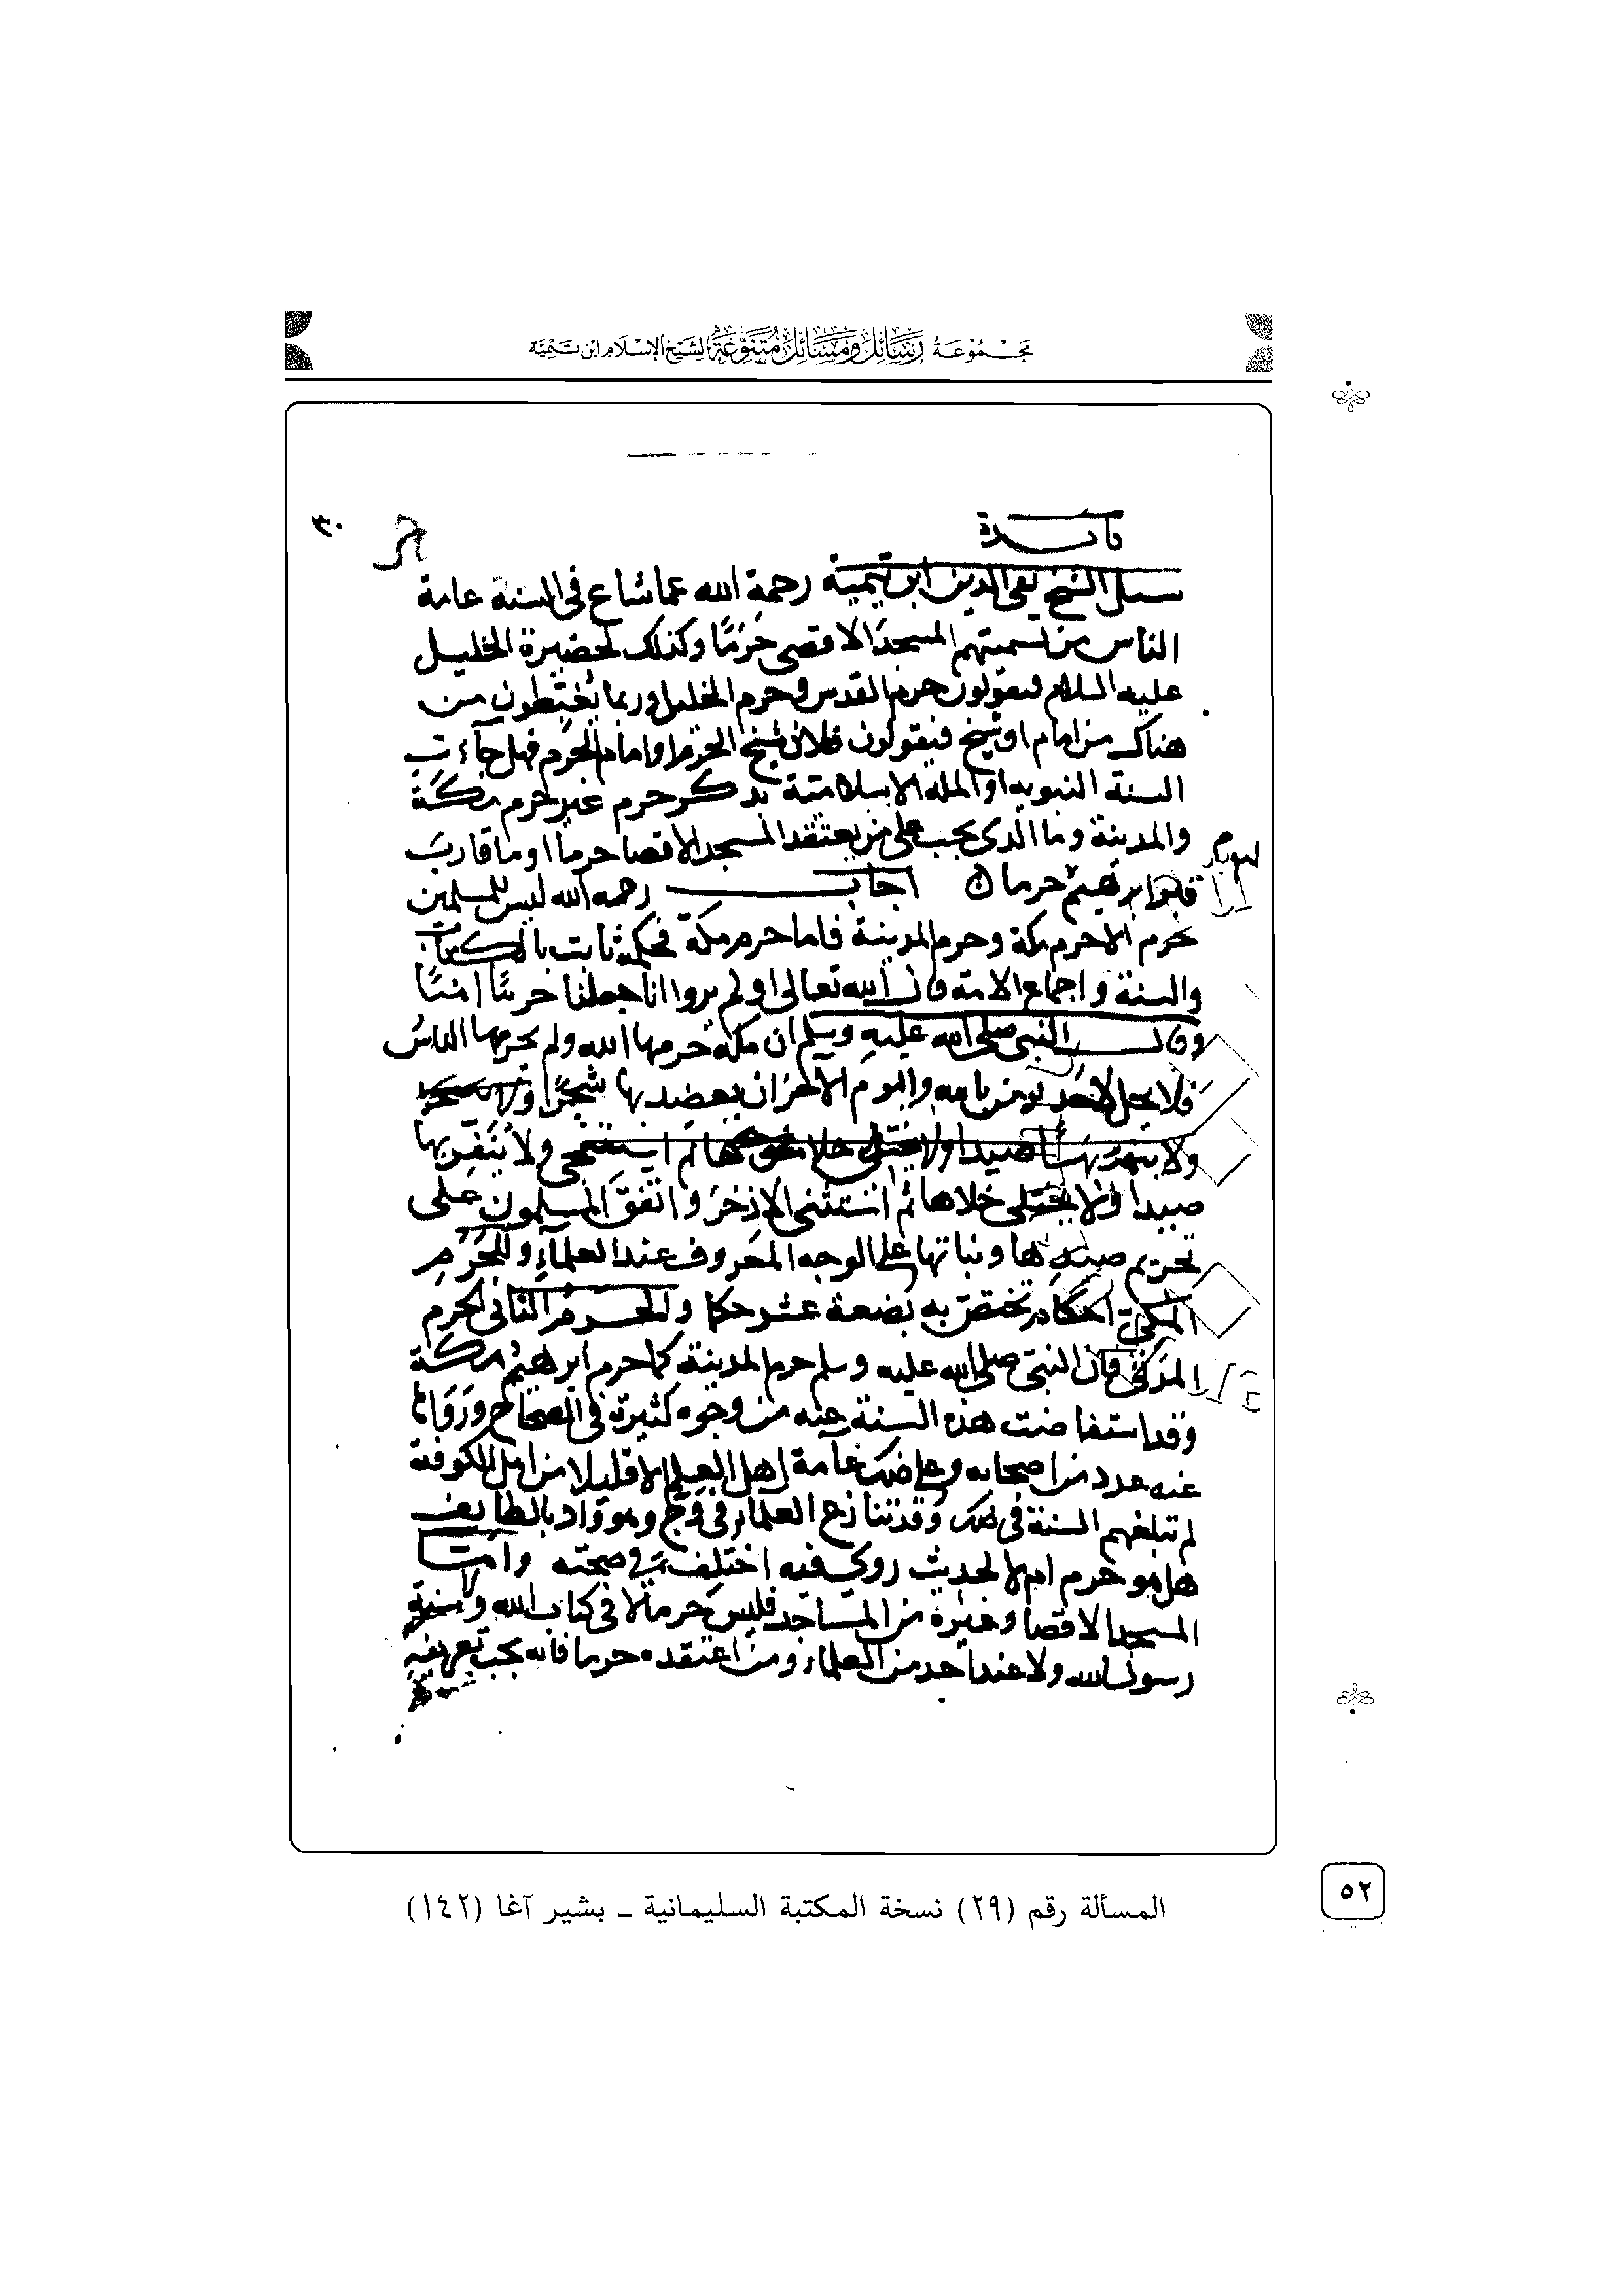 مجموعة رسائل ومسائل متنوعة لشيخ الإسلام ابن تيمية
٣٠
فائدة
سئل الشيخ تقى الدين ابن تيمية رحمة الله عما شاع فى السنة عامة
الناس من تسميتهم المسجد الاقصى حرمًا وكذلك لحضيرة الخليل
عليه السلام فيقولون حرم القدس وحرم الخليل وربما من
هناك من امام او شيخ فيقولون فلان شيخ الحرم او امام الحرم فهل جاءت
السنة النبويه او المله الاسلامية بذكر حرم غير حرم مكة
والمدينة وما الذى يجب على من يعتقد المسجد الاقصا حرما او ما قارب
قبر ابرهيم حرما اجاب رحمه الله ليس للمسلمين
حرم الا حرم مكة وحرم المدينة فاما حرم مكة فحكمه ثابت بالكتاب
والسنة واجماع الامة قال الله تعالى اولم يروا انا جعلنا حرمًا امنًا
وقال النبى صلى الله عليه وسلم ان مكة حرمها الله ولم يحرمها الناسُ
فلا يحل لاحد يومن بالله واليوم الاخر ان يعضد بها شجرًا
ولا صيدا ولا يختلى خلا ها ثم ولا يُنَفّر بها
صيدا ولا يختلى خلاها ثم استثنى الاذخرَ واتفقَ المسلمون على
تحريم صيدها ونباتها على الوجه المعروف عند العلماءِ وللحَرَم
المكي احكام يختصّ به بضعة عشر حكما والحرم الثانى حرم
فان النبى صلى الله عليه وسلم حرم المدينة كما حرم ابرهيمُ مكة
وقد استفاضت هذه السنة عنه من وجوه كثيرة فى الصحاح ورَوَاها
عنه عدد من اصحابه وعلى ذلك عامة اهل العلم الا قليلا من اهل الكوفة
لم تبلغهم السنة فى ذلك وقد تنازع العلماء فى وَجّ وهو وَادٍ بالطايف
هل هو حرم ام لا لحديث روي فيه اختلف فى صحته وامّا
المسجد الاقصا وغيره من المساجد فليس حرما لا فى كتاب الله ولا سنة
رسول الله ولا عند احد من العلماء ومن اعتقده حرما فانه يجب تعريفه
٥٢
المسألة رقم (٢٩) نسخة المكتبة السليمانية - بشير آغا (١٤٢)